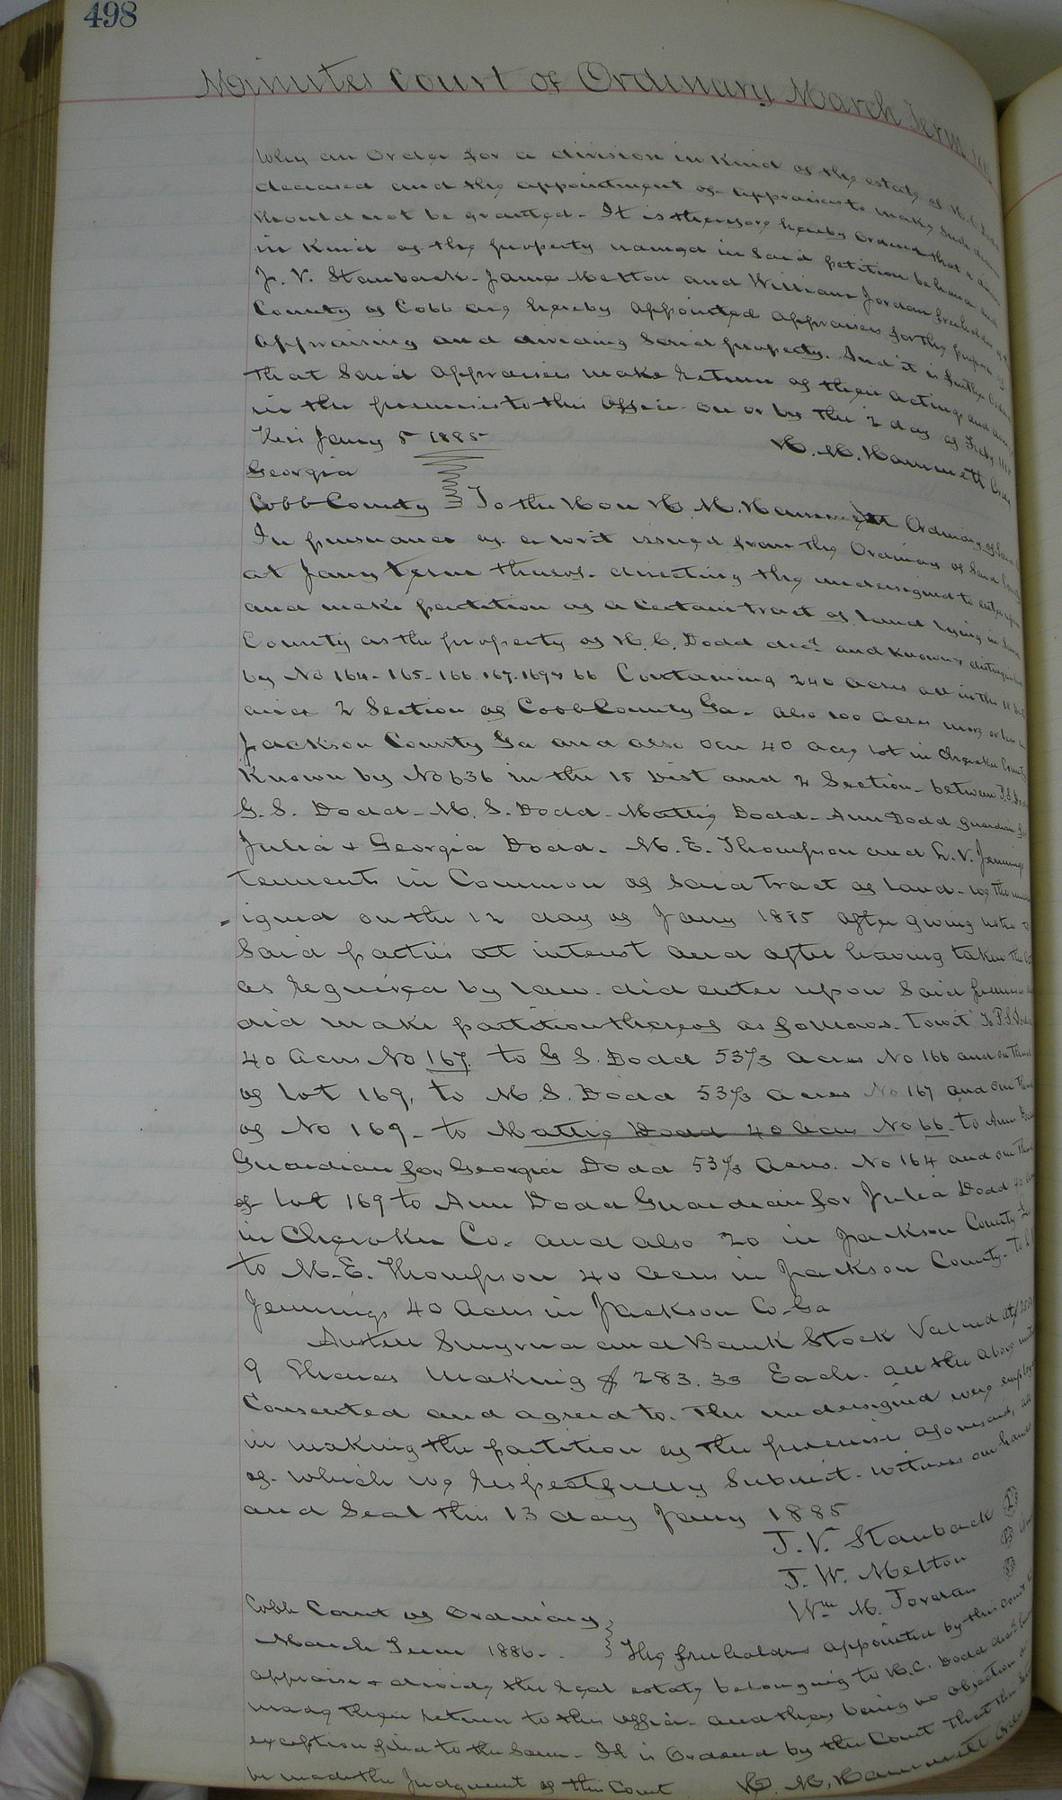 498
Minutes Court of Ordinary March Term
Why an Order for a division in Kind of the estate of H. C.
deceased and the appointment of appraisers to make such
Should not be granted. It is therefore hereby Ordered that a
in Kind of the property named in Said petition be had and
J. V. Stanback. James Melton and William Jordan freeholders of
County of Cobb are hereby appointed appraisers for the purpose of
Appraising and dividing Said property. And it is further
that Said Appraisers make return of their actings and
in the premises to this Office on or by the 2 day of Feby
This Jany 5 1885
H. M. Hammett
Georgia
Cobb County } To the Hon H. M. Hammett Ordinary of Said
In pursuance of a writ issued from the Ordinary of Said
at Jany term thereof. directing the undersigned to enter upon
and make partition of a Certain tract of land lying in Said
County as the property of H. C. Dodd decd and Known & distinguished
by No 164-165-166.167.169 & 66 Containing 240 acres all in the
and 2 Section of Cobb County Ga. also 100 acres more or less in
Jackson County Ga and also One 40 acre lot in Cherokee County
Known by No 636 in the 15 Dist and 2 Section. between P.S.
G. S. Dodd. M. S. Dodd. Mattie Dodd. Ann Dodd guardian for
Julia & Georgia Dodd. M. E. Thompson and L. V. Jennings
tennents in Common of Said tract of land. we the
igned on the 12 day of Jany 1885 after giving notice
Said parties at interest and after having taken the
as required by law. did enter upon Said
did make partition thereof as follows. towit To P.S.
40 Acres No 167. to G S. Dodd 53 1/3 acres No 166 and
of lot 169. to M. S. Dodd 53 1/3 acres No 167 and one
of No 169. to Mattie Dodd 40 Acres No 66. to Ann
Guardian for Georgia Dodd 53 1/3 Acres. No 164 and one
of lot 169 to Ann Dodd Guardian for Julia Dodd
in Cherokee Co. and also 20 in Jackson County
to M. E. Thompson 40 Acres in Jackson County. To
Jennings 40 Acres in Jackson Co. Ga
Smyrna and Bank Stock Valued at
9 Shares Making $ 283.33 Each. all the above
Consented and agreed to. The undersigned were
in making the partition of the premises aforesaid,
of which we respectfully Submit. witness our hands
and Seal this 13 day Jany 1885
J. V. Stanback
J. W. Melton
Wm M. Jordan
Cobb Court of Ordinary
March Term 1886. } The freeholders appointed by this Court
appraise & divide the real estate belonging to H. C. Dodd
made their return to this Office. and there being no objection
exception filed to the Same. It is Ordered by the Court That
be made the Judgment of the Court
H. M. Hammett